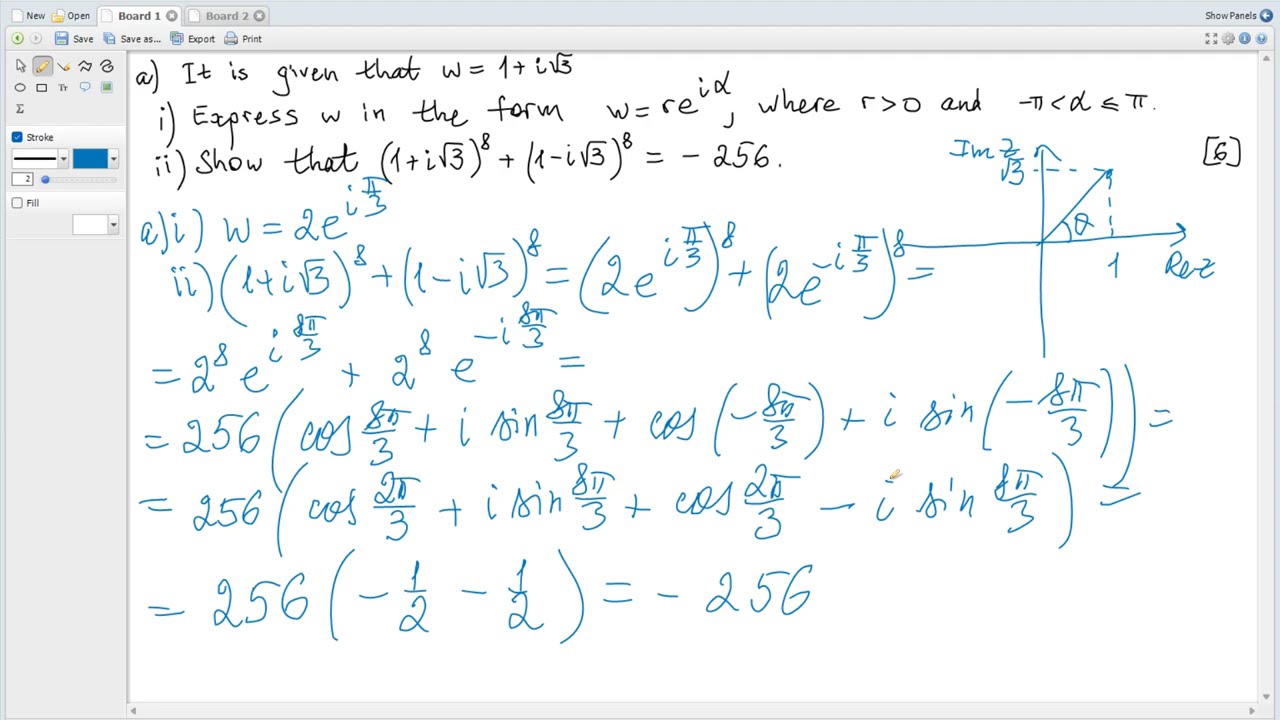 New Open Board 1 Board 2 Show Panels
Save Save as... Export Print
a) It is given that w = 1 + i√3
i) Express w in the form w = re^{iα}, where r > 0 and -π < α ≤ π.
ii) Show that (1+i√3)^8 + (1-i√3)^8 = -256. [6]
Im z
√3
θ
1
Re z
Tr
Σ
Stroke
2
Fill
a) i) w = 2e^{iπ/3}
ii) (1+i√3)^8 + (1-i√3)^8 = (2e^{iπ/3})^8 + (2e^{-iπ/3})^8 =
= 2^8 e^{i8π/3} + 2^8 e^{-i8π/3} =
= 256 (cos 8π/3 + i sin 8π/3 + cos (-8π/3) + i sin (-8π/3)) =
= 256 (cos 2π/3 + i sin 8π/3 + cos 2π/3 - i sin 8π/3) =
= 256 (-1/2 - 1/2) = -256